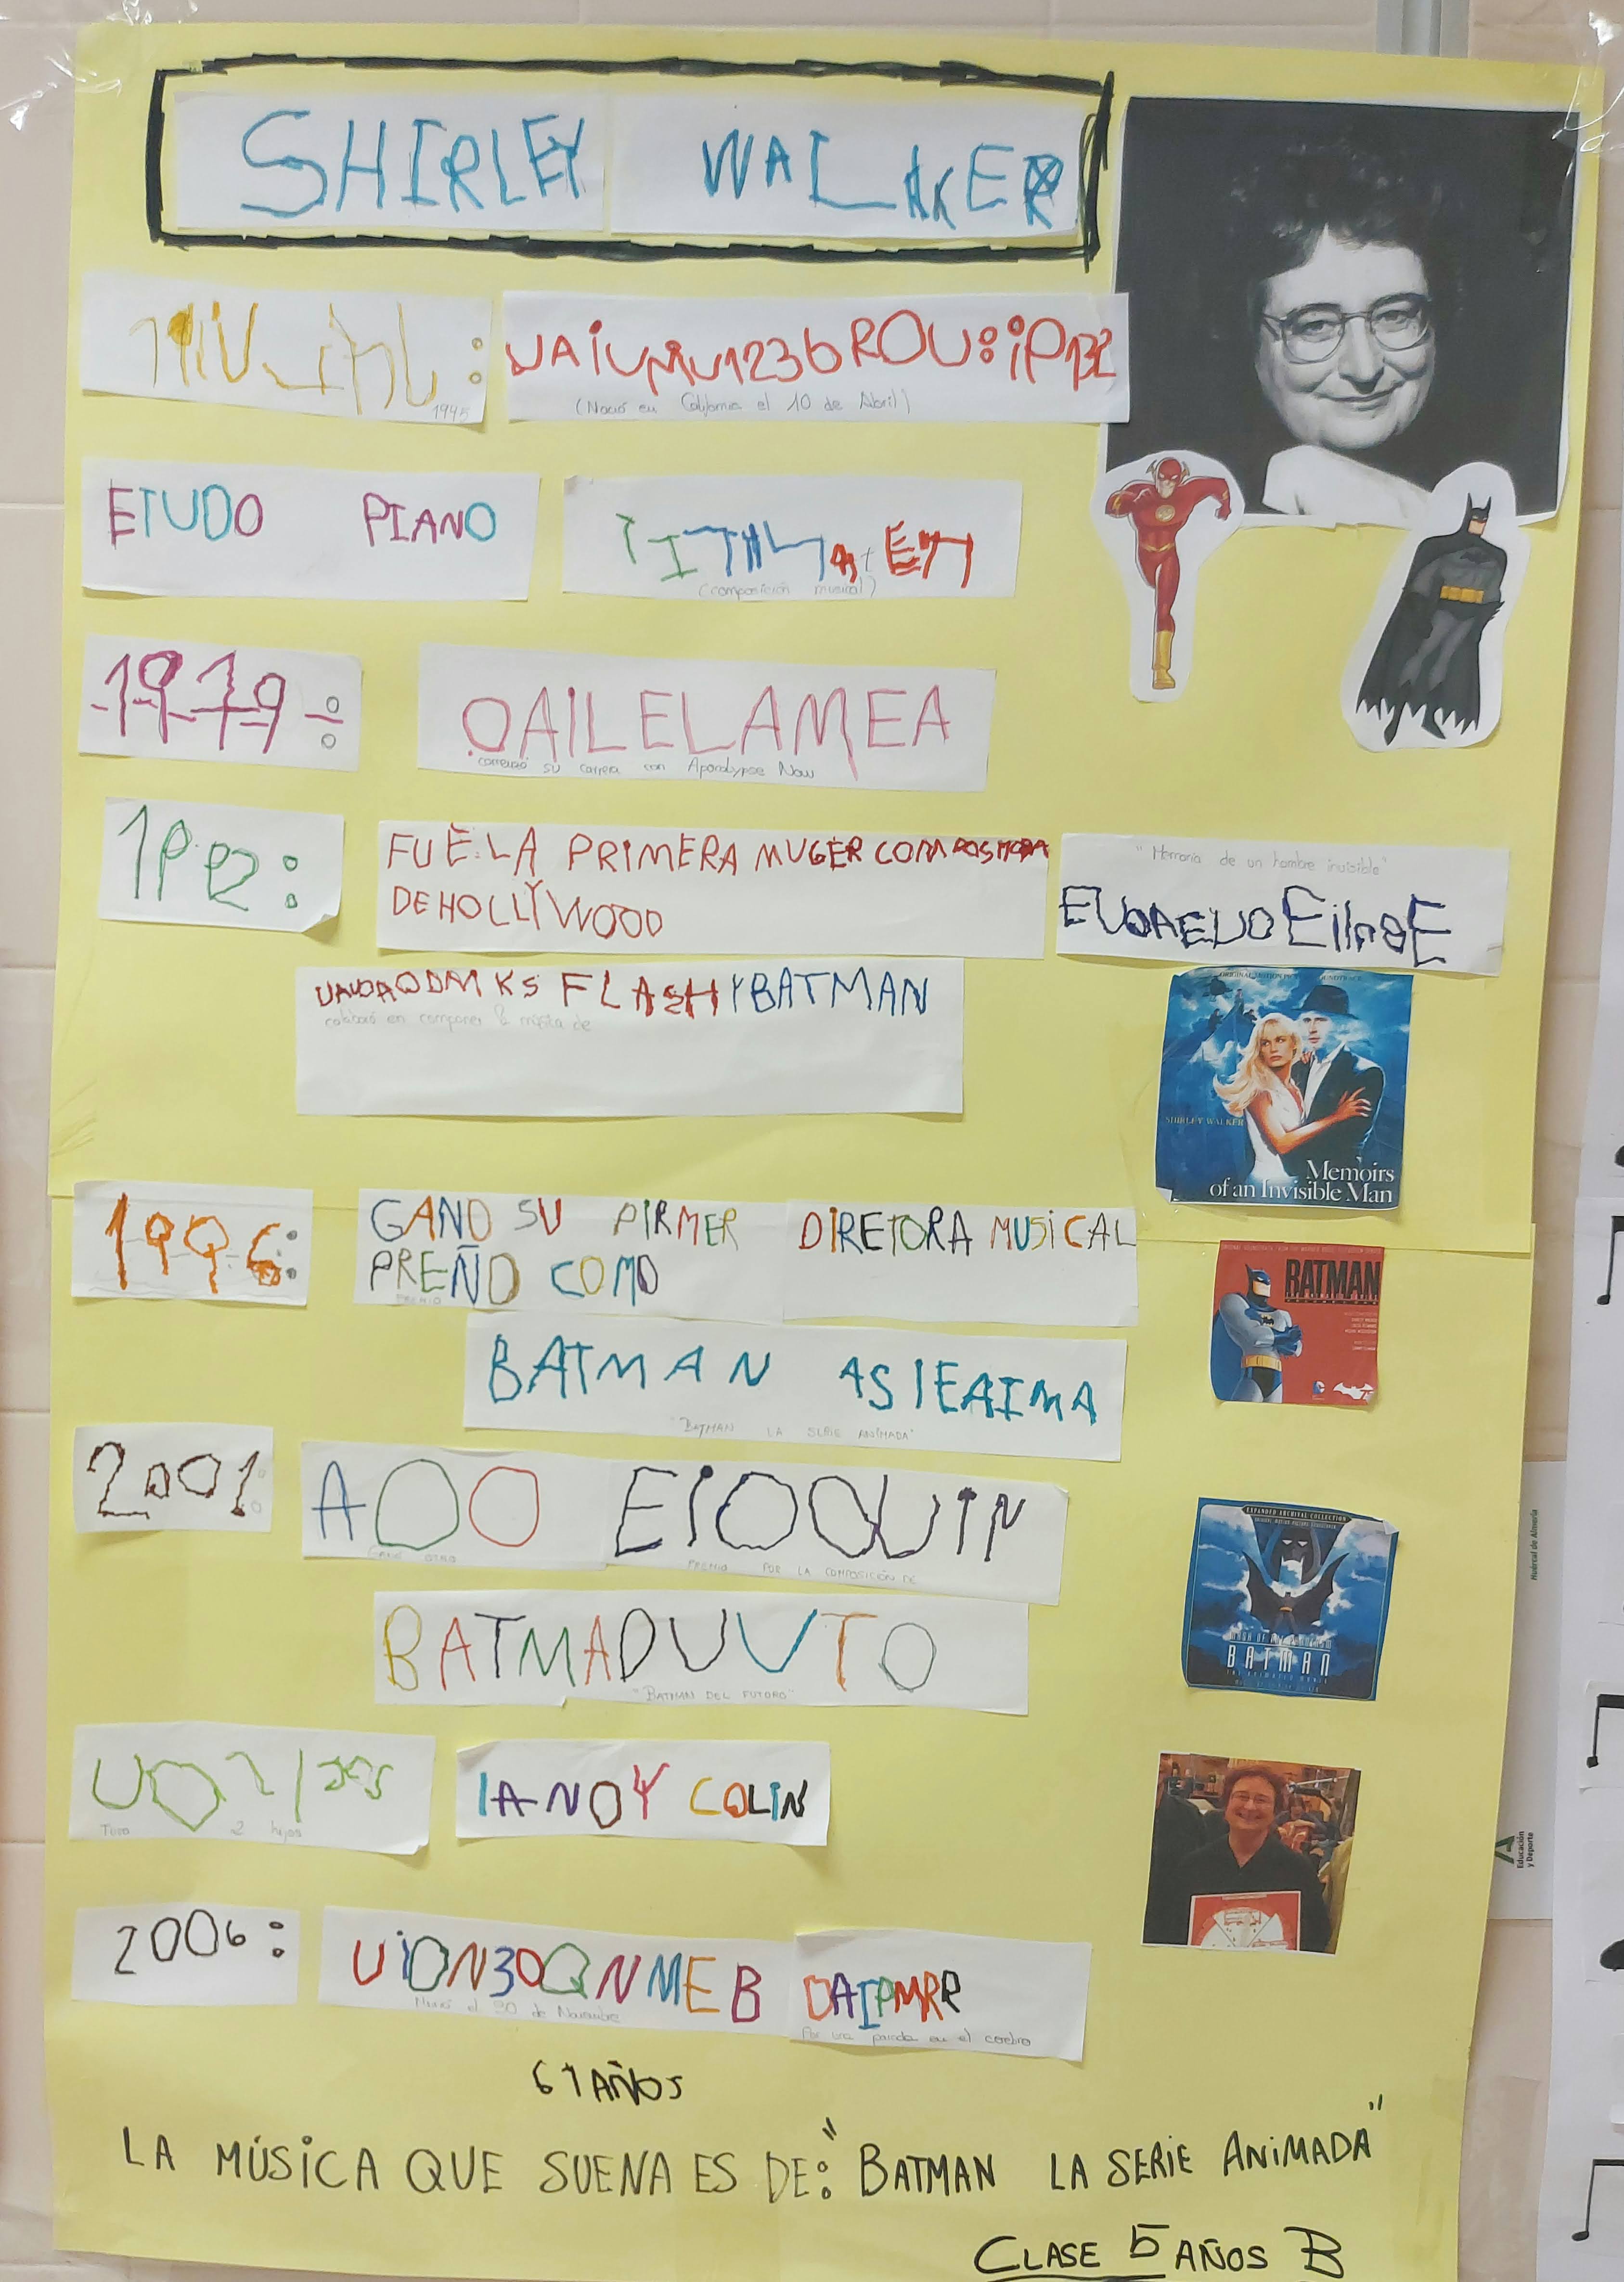 SHIRLEY WALKER
1945
(Nació en California el 10 de Abril)
ETUDO PIANO
(composición musical)
1979:
OAILELAMEA
comenzó su carrera con Apocalypse Now
FUÈ LA PRIMERA MUGER COMPOSITORA
DE HOLLYWOOD
"Memoria de un hombre invisible"
FLASH Y BATMAN
colaboró en componer la música de
ORIGINAL MOTION PICTURE SOUNDTRACK
SHIRLEY WALKER
Memoirs
of an Invisible Man
1996:
GANO SU PIRMER
PREÑO COMO
PREMIO
DIRETORA MUSICAL
BATMAN
BATMAN ASIEAIMA
"BATMAN LA SERIE ANIMADA"
2001:
AOO EIOQUIN
GANÓ OTRO PREMIO POR LA COMPOSICIÓN DE
EXPANDED ARCHIVAL COLLECTION
BATMAN
BATMADUVTO
"BATMAN DEL FUTURO"
Tuvo 2 hijos
IANOY COLIN
2006:
UION30QNMEB DAIPMRR
Murió el 30 de Noviembre
Por una parada en el cerebro
61 AÑOS
LA MÚSICA QUE SUENA ES DE: "BATMAN LA SERIE ANIMADA"
CLASE 5 AÑOS B
Huércal de Almería
Educación
y Deporte